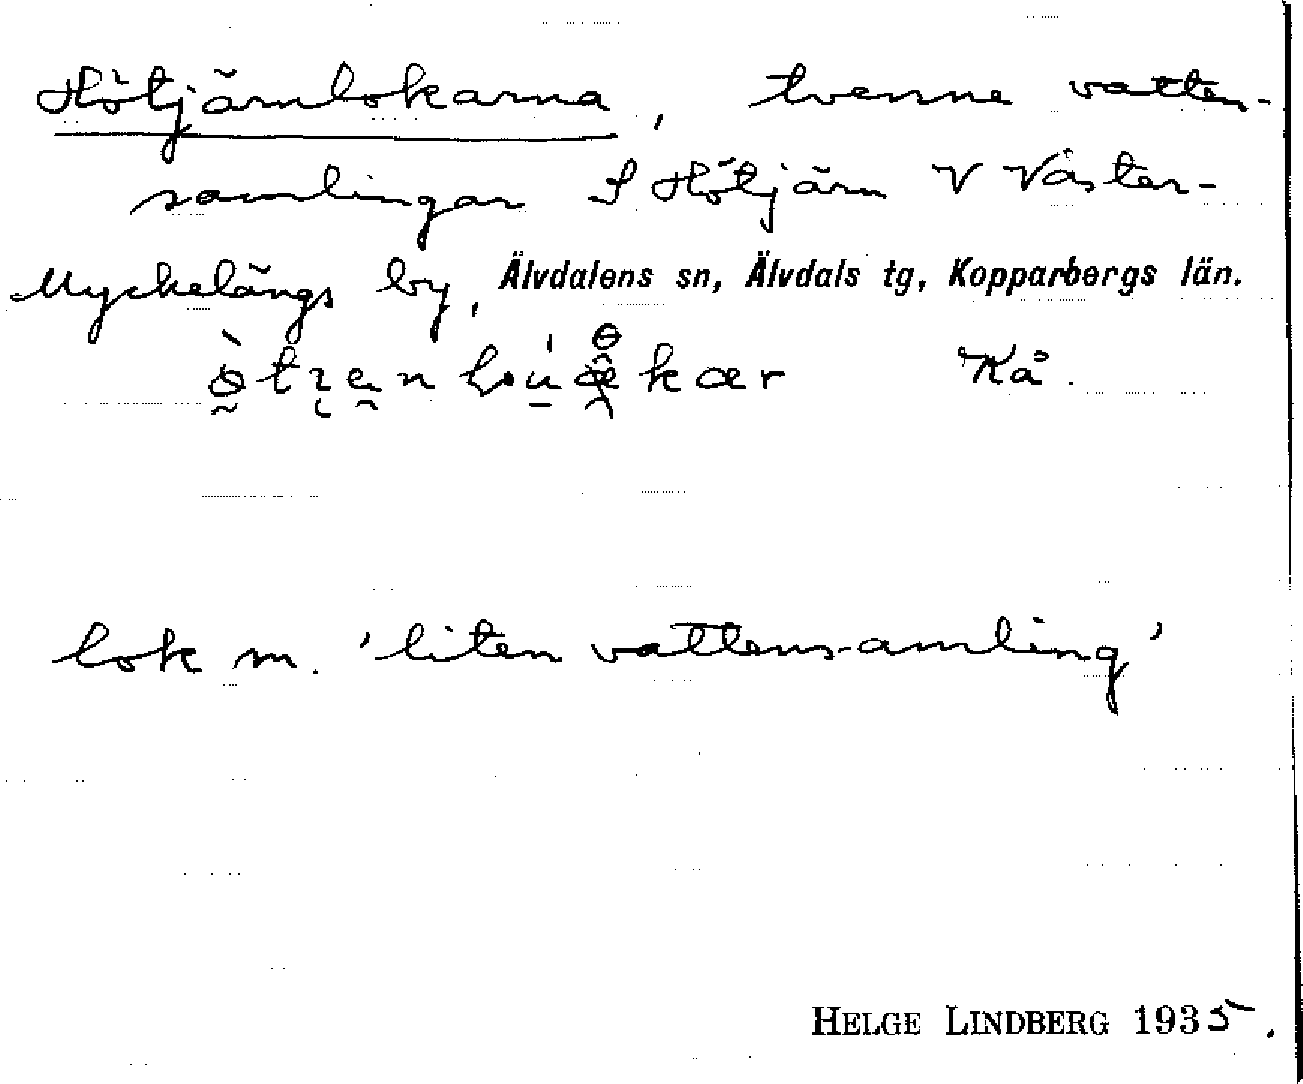 Hötjärnlokarna, tvenne vatten-
samlingar S Hötjärn V Väster-
Myckelängs by, Älvdalens sn, Älvdals tg, Kopparbergs län.
Kå.
lok m. 'liten vattensamling'
HELGE LINDBERG 1935.